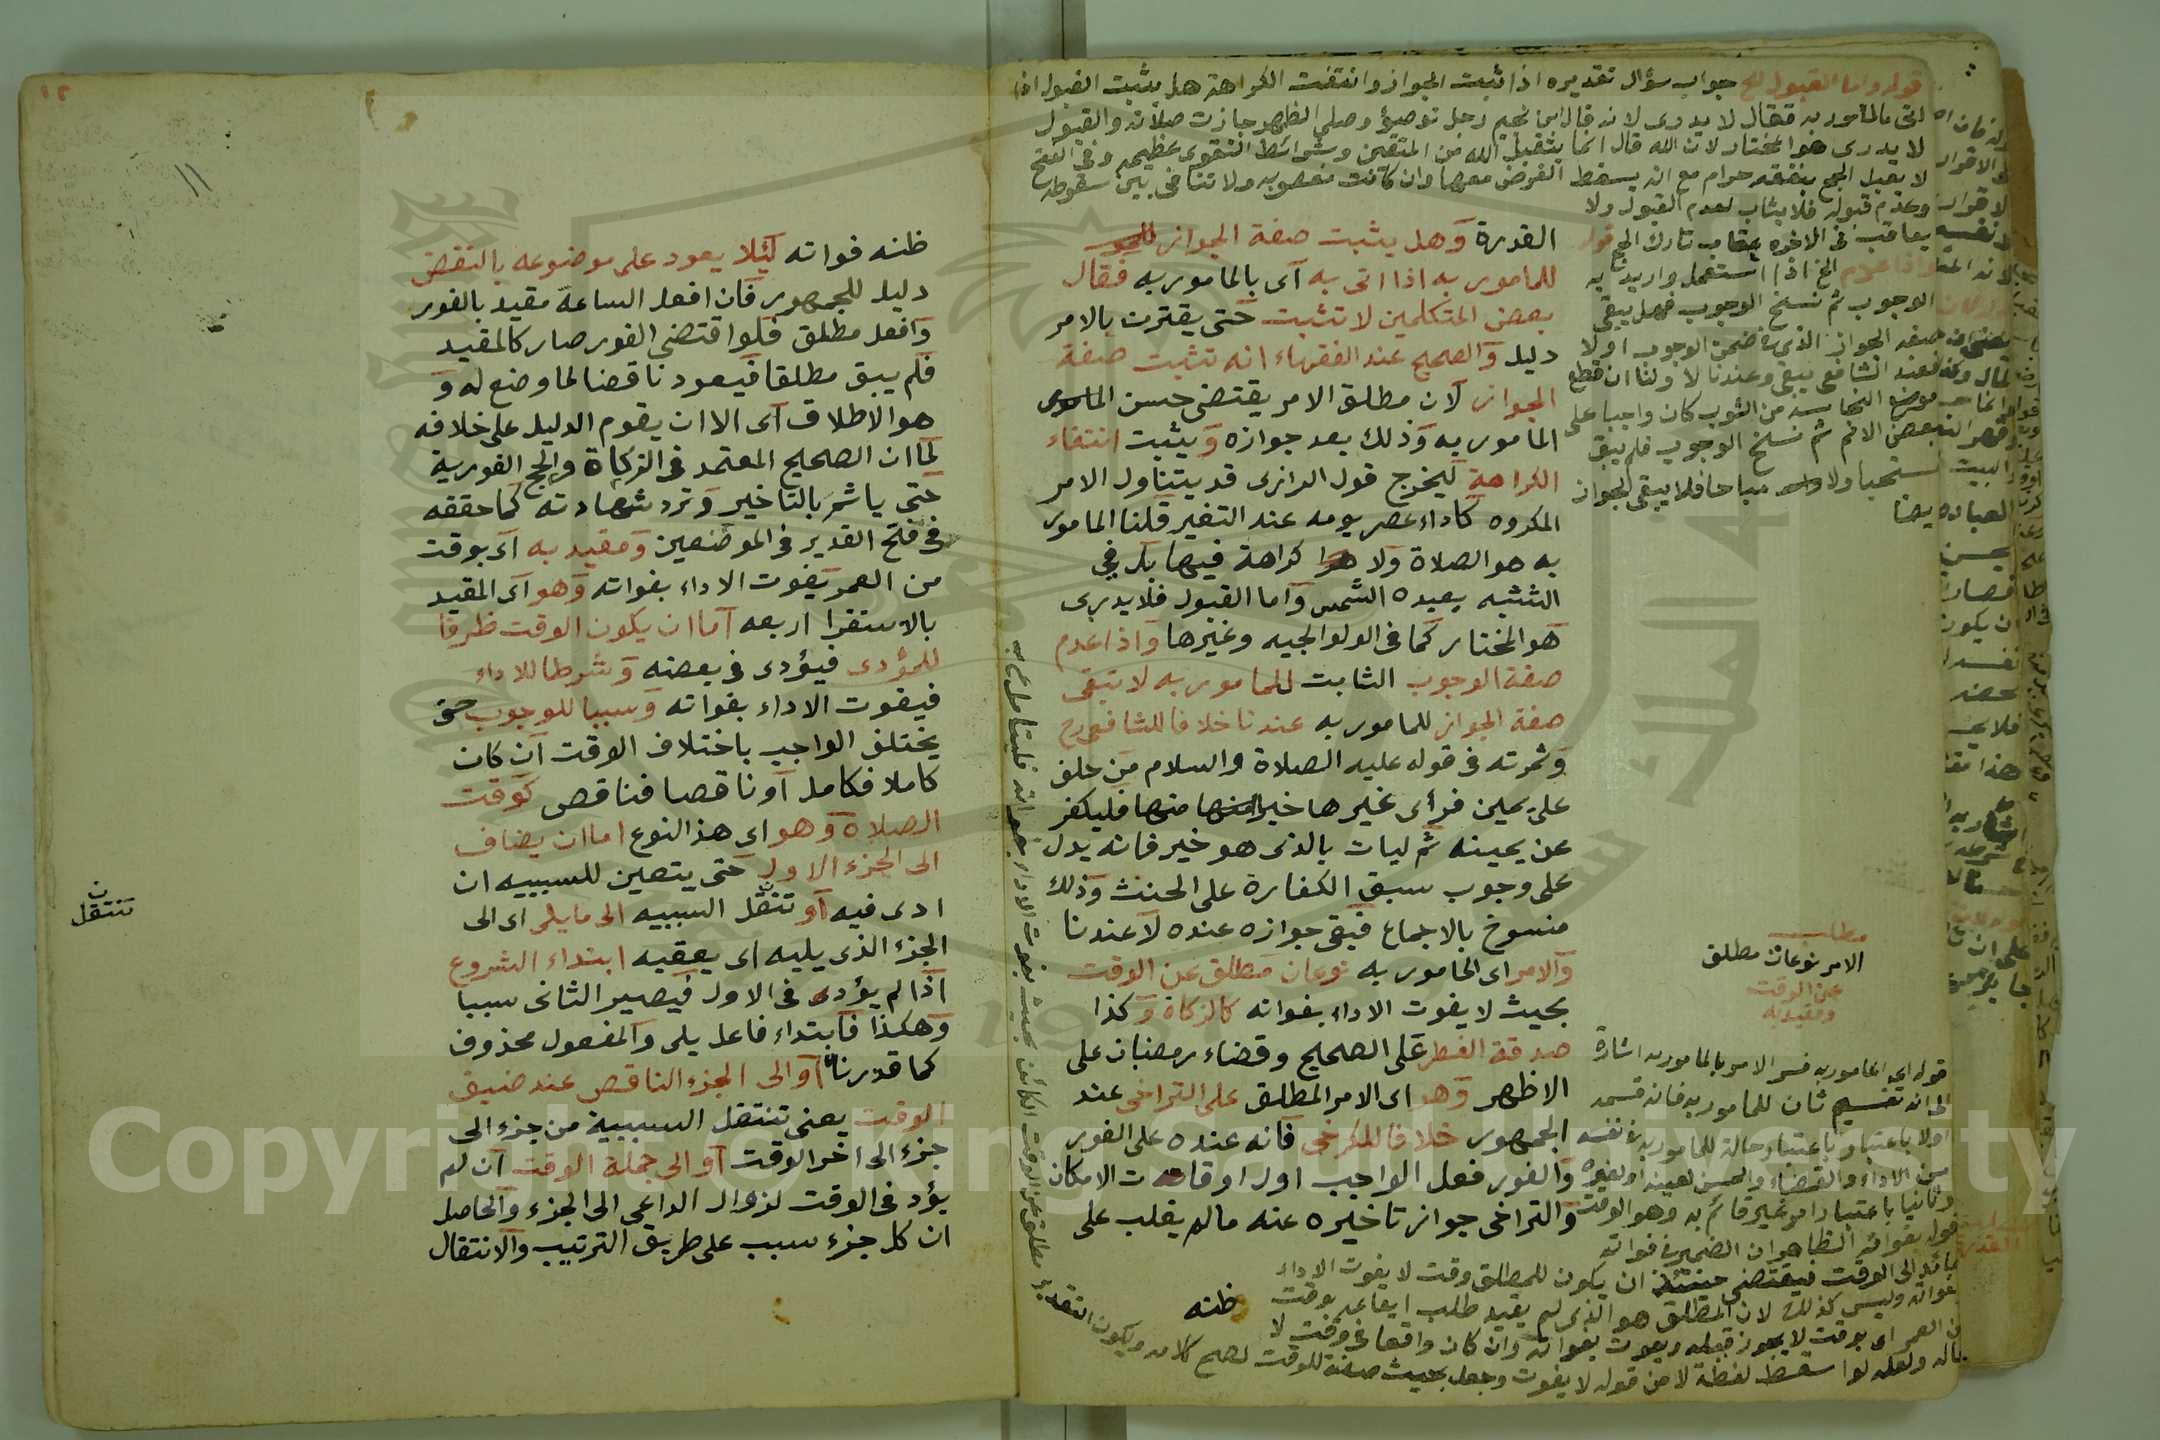 قوله واما القبول الخ جواب سؤال تقديره اذا ثبت الجواز وانتفت الكراهة هل يثبت القبول اذا
اتى بالمأمور به فقال لا يدرى لانه قال ابن نجيم رجل توضؤ وصلى الظهر جازت صلاته والقبول
لا يدرى هو المختار لان الله قال انما يتقبل الله من المتقين وشرائط التقوى عظيمه وفى الفتح
لا يقبل الحج بنفقه حرام مع انه يسقط الفرض معها وان كانت مغصوبه ولا تنافى بين سقوطه
وعدم قبوله فلا يثاب لعدم القبول ولا
يعاقب فى الاخره عقاب تارك الحج قوله
واذا عدم الخ اذا استعمل واريد به
الوجوب ثم نسخ الوجوب فهل يبقى
صفه الجواز الذى فى ضمن الوجوب اولا
فعند الشافعى يبقى وعندنا لا ولنا ان قطع
موضع النجاسه من الثوب كان واجبا على
ثم نسخ الوجوب فلم يبق
مستحبا ولا مباحا فلا يبقى الجواز
القدرة وهل يثبت صفة الجواز
للمامور به اذا اتى به آى بالمامور به فقال
بعض المتكلمين لا تثبت حتى يقترن بالامر
دليل والصحيح عند الفقهاء انه تثبت صفة
الجواز لان مطلق الامر يقتضى حسن
المامور به وذلك بعد جوازه ويثبت انتفاء
الكراهة ليخرج قول الرازى قد يتناول الامر
المكروه كاداء عصر يومه عند التغير قلنا المامور
به هو الصلاة ولا كراهة فيها بل فى
التشبه بعبدة الشمس واما القبول فلا يدرى
هو المختار كما فى الولوالجيه وغيرها واذا عدم
صفة الوجوب الثابت للمامور به لا تبقى
صفة الجواز للمامور به عندنا خلافا للشافعى رح
وثمرته فى قوله عليه الصلاة والسلام من حلف
على يمين فرأى غيرها خيرا منها فليكفر
عن يمينه ثم ليات بالذى هو خير فانه يدل
على وجوب سبق الكفارة على الحنث وذلك
منسوخ بالاجماع فبقى جوازه عنده لا عندنا
والامر اى المامور به نوعان مطلق عن الوقت
بحيث لا يفوت الاداء بفواته كالزكاة وكذا
صدقة الفطر على الصحيح وقضاء رمضان على
الاظهر وهو اى الامر المطلق على التراخى عند
الجمهور خلافا للكرخى فانه عنده على الفور
والفور فعل الواجب اول اوقات الامكان
والتراخى جواز تاخيره عنه مالم يغلب على
ظنه
مطلب
الامر نوعان مطلق
عن الوقت
ومقيد به
قوله اى المامور به فسر الامر بالمامور به اشارة
الى انه تقسيم ثان للمامور به فانه قسمه
اولا باعتبار باعتبار حالة للمامور به فى نفسه
من الاداء والقضاء والحسن لعينه او لغيره
وثانيا باعتبار امر غير قائم به وهو الوقت
قوله بفواته الظاهر ان الضمير فى فواته
عائد الى الوقت فيقتضى حينئذ ان يكون للمطلق وقت لا يفوت الاداء
بفواته وليس كذلك لان المطلق هو الذى لم يقيد طلب ايقاعه بوقت
من العمر اى بوقت لا يجوز قبله ويفوت بفواته وان كان واقعا فى وقت لا
محالة ولعله لو اسقط لفظة لا من قوله لا يفوت وجعل بحيث صفة للوقت لصح كلامه ويكون التقدير
مطلق عن الوقت الكائن بحيث يفوت الاداء بفواته فليتامل
١٢
١١
ظنه فواته لئلا يعود على موضوعه بالنقض
دليل للجمهور فان افعل الساعة مقيد بالفور
وافعل مطلق فلو اقتضى الفور صار كالمقيد
فلم يبق مطلقا فيعود ناقضا لما وضع له و
هو الاطلاق آى الا ان يقوم الدليل على خلافه
لما ان الصحيح المعتمد فى الزكاة والحج الفورية
حتى ياثم بالتاخير وترد شهادته كما حققه
فى فتح القدير فى الموضعين ومقيد به آى بوقت
من العمر يفوت الاداء بفواته وهو آى المقيد
بالاستقرا اربعه آما ان يكون الوقت ظرفا
للمؤدى فيؤدى فى بعضه وشرطا للاداء
فيفوت الاداء بفواته وسببا للوجوب حتى
يختلف الواجب باختلاف الوقت آن كان
كاملا فكامل آو ناقصا فناقص كوقت
الصلاة وهو اى هذ النوع اما ان يضاف
الى الجزء الاول حتى يتعين للسببيه ان
ادى فيه آو تنتقل السببيه الى ما يلى اى الى
الجزء الذى يليه اى يعقبه ابتداء الشروع
اذا لم يؤد فى الاول فيصير الثانى سببا
وهكذا فابتداء فاعل يلى والمفعول محذوف
كما قدرنا آو الى الجزء الناقص عند ضيق
الوقت يعنى تنتقل السببية من جزء الى
جزء الى اخر الوقت آو الى جملة الوقت آن لم
يؤد فى الوقت لزوال الداعى الى الجزء والحاصل
ان كل جزء سبب على طريق الترتيب والانتقال
ن
تنتقل
Copyright © King Saud University